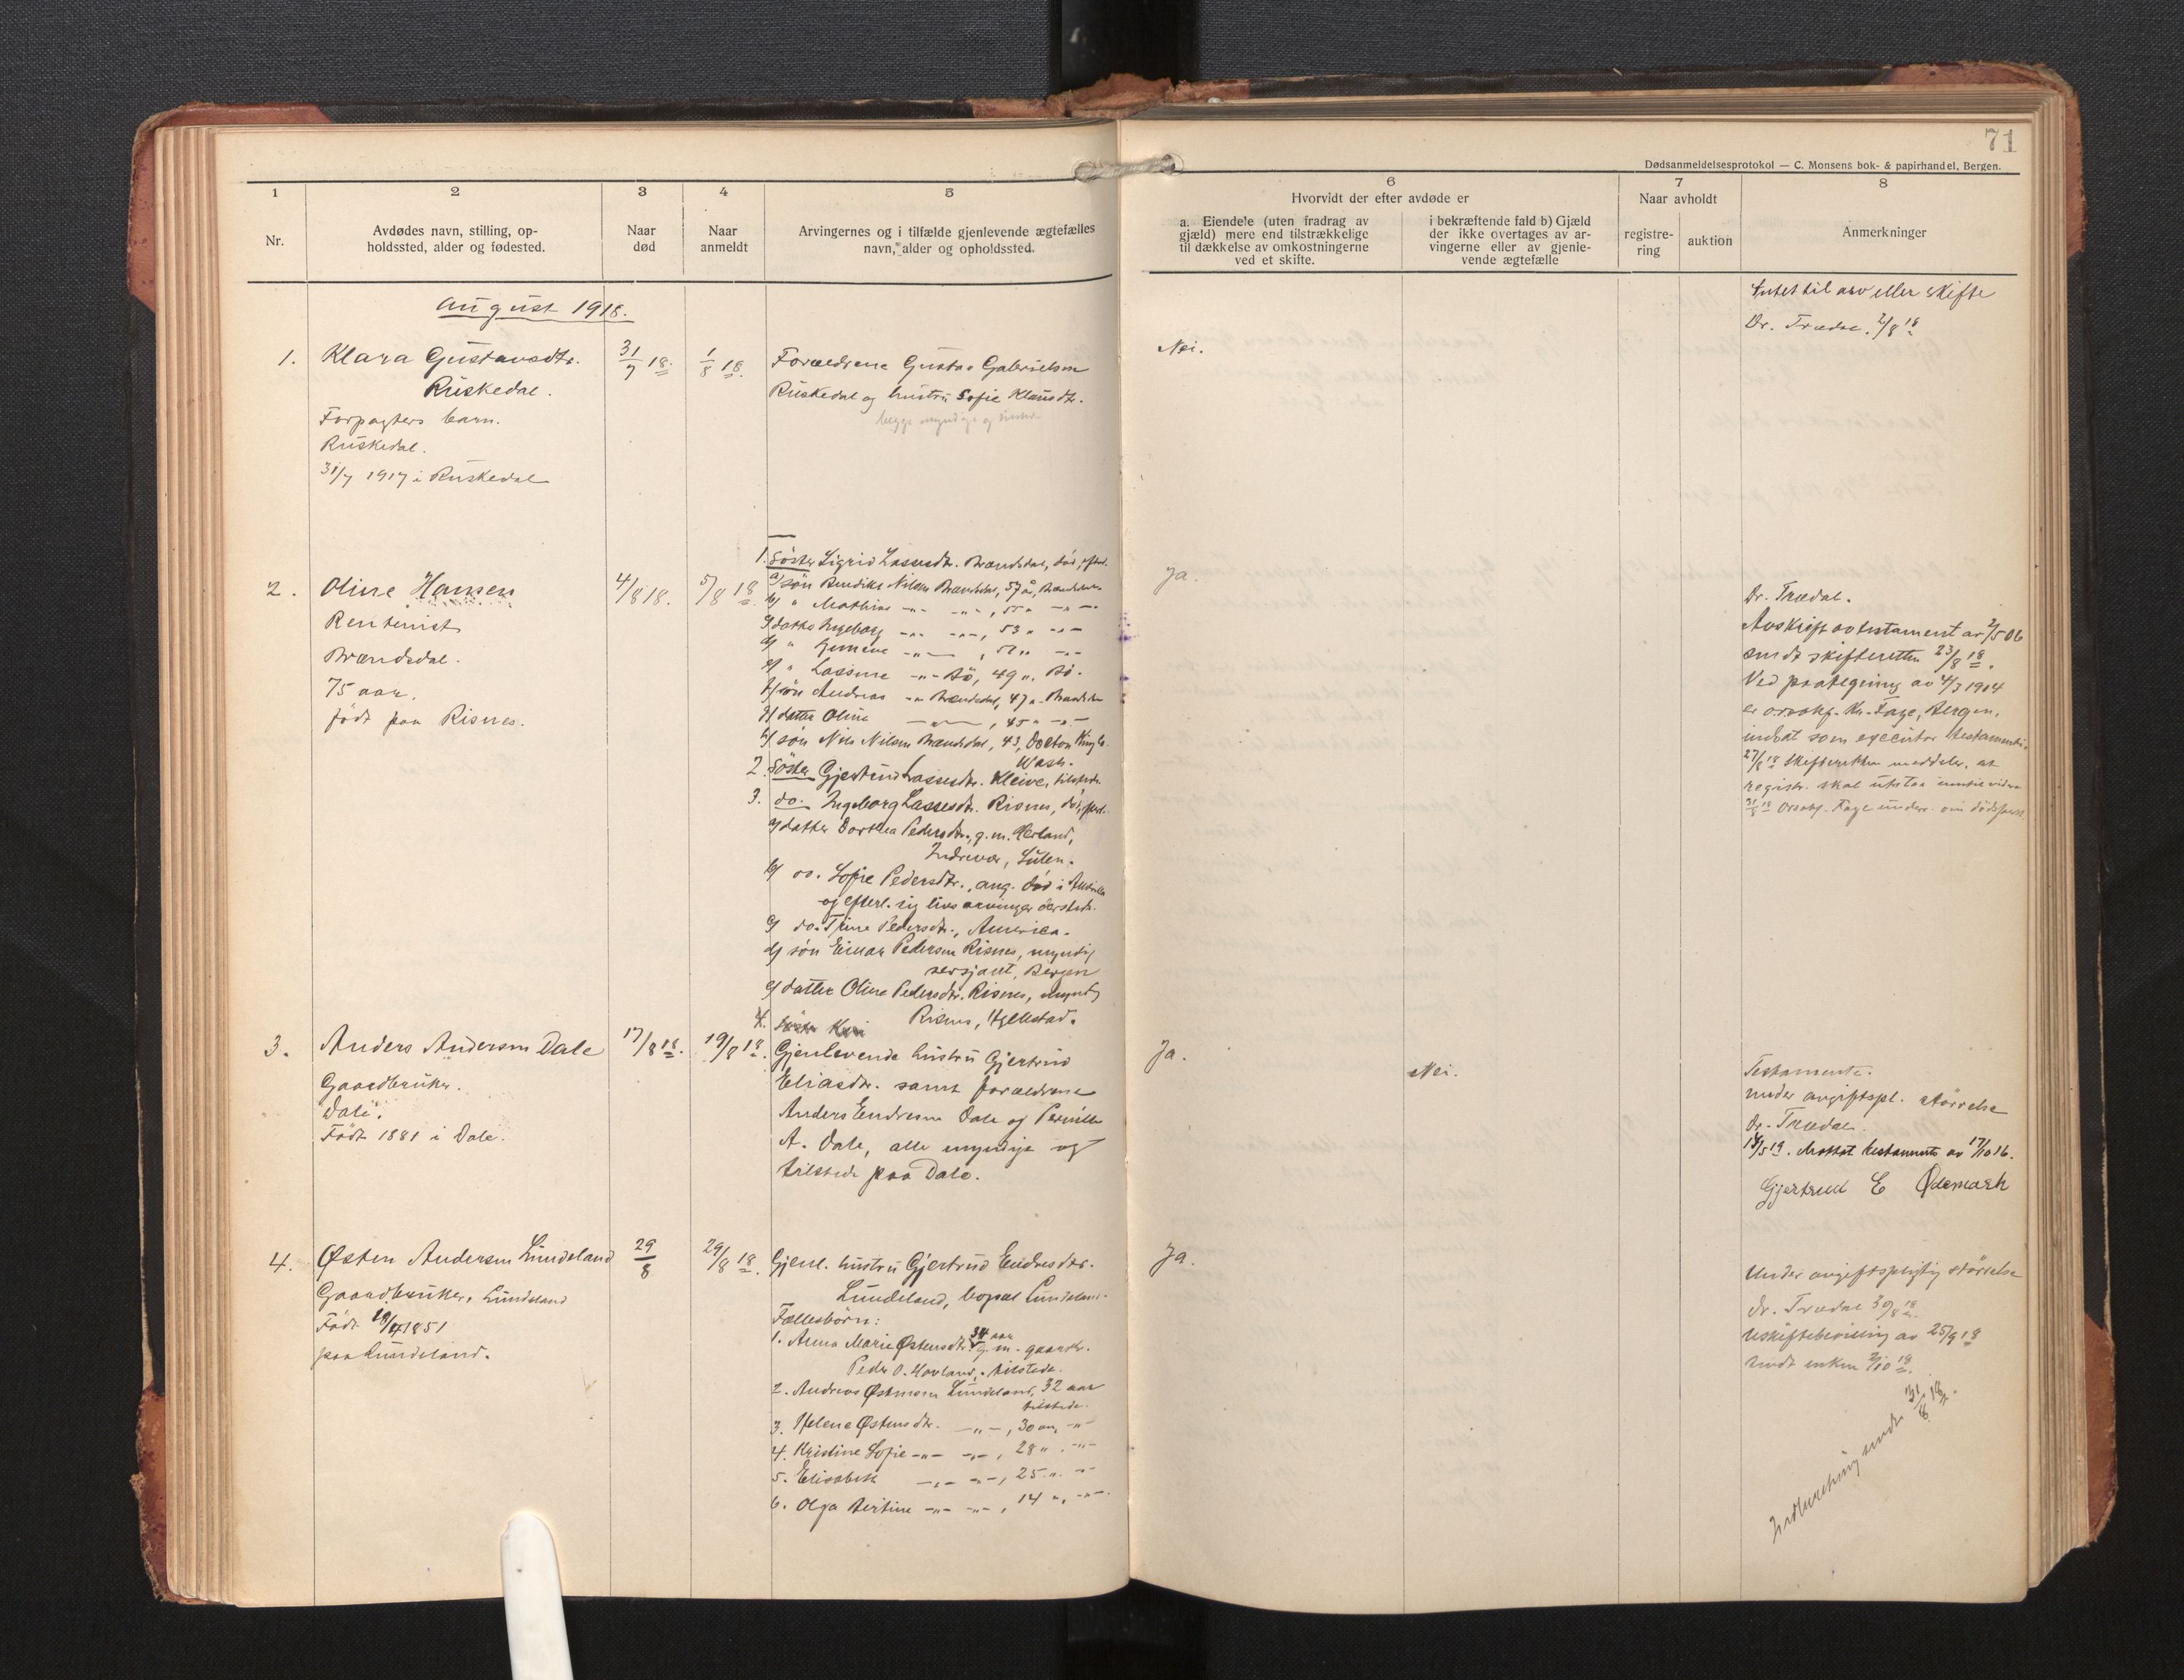 71
Dødsanmeldelsesprotokol — C. Monsens bok- & papirhandel, Bergen.
1
Nr.
2
Avdødes navn, stilling, op-
holdssted, alder og fødested.
3
Naar
død
4
Naar
anmeldt
5
Arvingernes og i tilfælde gjenlevende ægtefælles
navn, alder og opholdssted.
6
Hvorvidt der efter avdøde er
a. Eiendele (uten fradrag av
gjæld) mere end tilstrækkelige
til dækkelse av omkostningerne
ved et skifte.
i bekræftende fald b) Gjæld
der ikke overtages av ar-
vingerne eller av gjenle-
vende ægtefælle
7
Naar avholdt
registre-
ring
auktion
8
Anmerkninger
August 1918.
1.
Klara Gustavsdtr.
Ruskedal.
Forpagters barn.
Ruskedal.
31/7 1917 i Ruskedal
31/7 18.
1/8 18.
Forældrene Gustav Gabrielsen
Ruskedal og hustru Sofie Klausdtr.
begge myndige og
Nei.
Intet til arv eller skifte
Dr. Trædal. 2/8 18
2.
Oline Hansen
Rentenist
Brændsdal.
75 aar.
født paa Risnes.
4/8 18.
5/8 18
1. Søster Sigrid Lassesdtr. Brændsdal, død, efterl.
a/ søn Bendiks Nilsen Brændsdal, 57 år, Brændsdal
b/ " Mathias -"- -"-, 55 " -"-
c/ datter Ingeborg -"- -"-, 53 " -"-
d/ " -"-, 51 " -"-
e/ " Lassine -"- Bö, 49 ", Bö.
f/ søn Andreas -"- Brændsdal, 47 " Brændsdal
g/ datter Oline -"-, 45 " -"-
h/ søn Nils Nilsen Brændsdal, 43, Docton King Co.
Wash.
2. Søster Gjertrud Lassesdtr. Kleive, tilstede.
3. do. Ingeborg Lassesdtr. Risnes, død, efterl.
a/ datter Dorthea Pedersdtr., g.m. Herland,
Indrevær, Sulen.
b/ do. Sofie Pedersdtr., ang. død i
og efterl. sig livsarvinger dersteds.
c/ do. Trine Pedersdtr., America.
d/ søn Einar Pedersen Risnes, myndig
sersjant, Bergen
e/ datter Oline Pedersdtr. Risnes, myndig
Risnes, Hyllestad.
4. søster Kari
Ja.
Dr. Trædal.
Avskrift av testament av 2/5 06
sendt skifteretten 23/8 18.
Ved paategning av 4/3 1904
er o.r.sakf. Kr. Faye, Bergen,
indsat som executor testamenti.
27/8 18 Skifteretten meddeler, at
registr. skal utstaa inntil videre
31/8 18 Orsakf. Faye underr. om dødsfaldet
3.
Anders Andersen Dale
Gaardbruker.
Dale.
Født 1881 i Dale.
17/8 18.
19/8 18.
Gjenlevende hustru Gjertrud
Eliasdtr. samt forældrene
Anders Endresen Dale og Pernille
A. Dale, alle myndige og
tilstede paa Dale.
Ja.
Nei.
Testamente.
under avgiftspl. størrelse
Dr. Trædal.
18/5 19. Mottat testamente av 17/10 16.
Gjertrud E Ødemark
4.
Østen Andersen Lundeland
Gaardbruker, Lundeland
Født 1851
paa Lundeland.
29/8
29/8 18.
Gjenl. hustru Gjertrud Endresdtr.
Lundeland, bopæl Lundeland.
Fællesbörn:
1. Anna Marie Østensdtr. 34 aar g.m. gaardbr.
Peder O. Hovland, tilstede.
2. Andreas Østensen Lundeland, 32 aar
tilstede.
3. Helene Østensdtr. -"-, 30 aar, -"-
4. Kristine Sofie -"- -"-, 28 ". -"-
5. Elisabeth -"- -"-, 25 ". -"-
6. Olga Bertine -"- -"-, 14 ", -"-
Ja.
Under avgiftspligtig størrelse
Dr. Trædal 30/8 18.
Uskiftebevilling av 25/9 18
sendt enken 2/10 18.
Indberetning sendt 31/8 18.